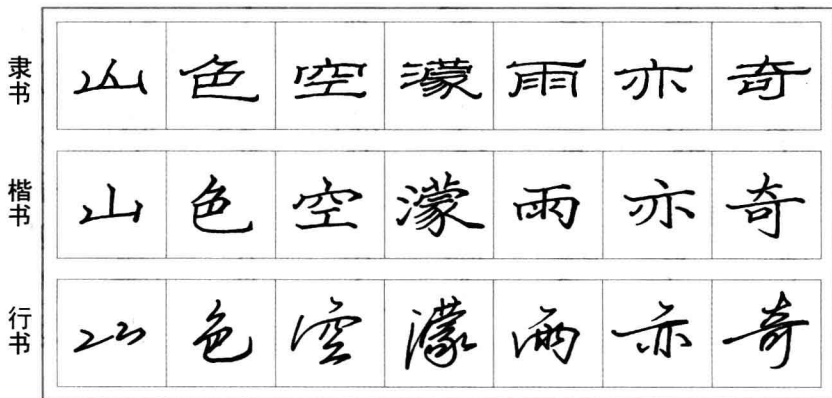 隶书 山色空濛雨亦奇
楷书 山色空濛雨亦奇
行书 山色空濛雨亦奇